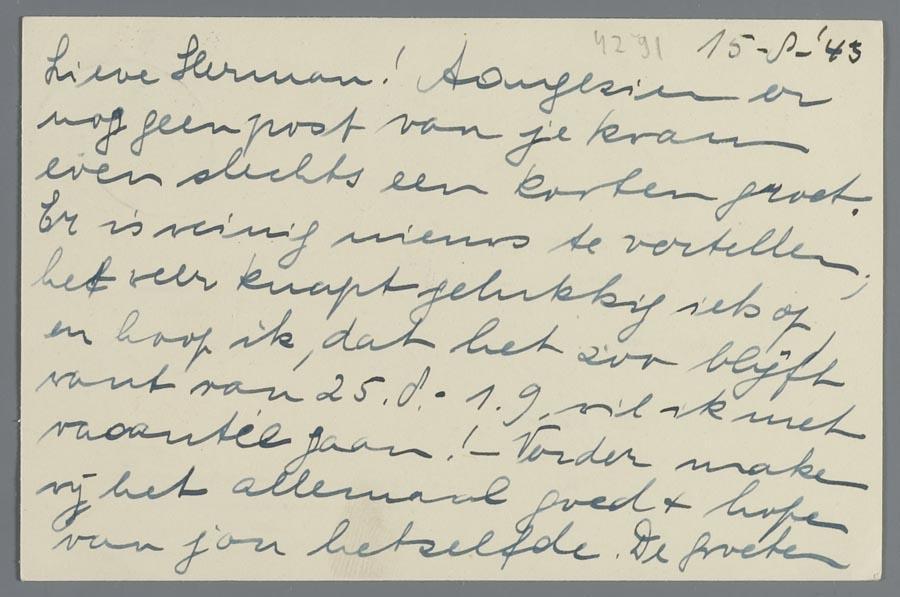 4291 15-8-'43
Lieve Herman! Aangezien er
nog geen post van je kwam
even slechts een korten groet.
Er is weinig nieuws te vertellen,
het weer knapt gelukkig iets op,
en hoop ik, dat het zoo blijft
want van 25.8.-1.9. wil ik met
vacantie gaan! - Verder maken
wij het allemaal goed + hopen
van jou hetzelfde. De groeten